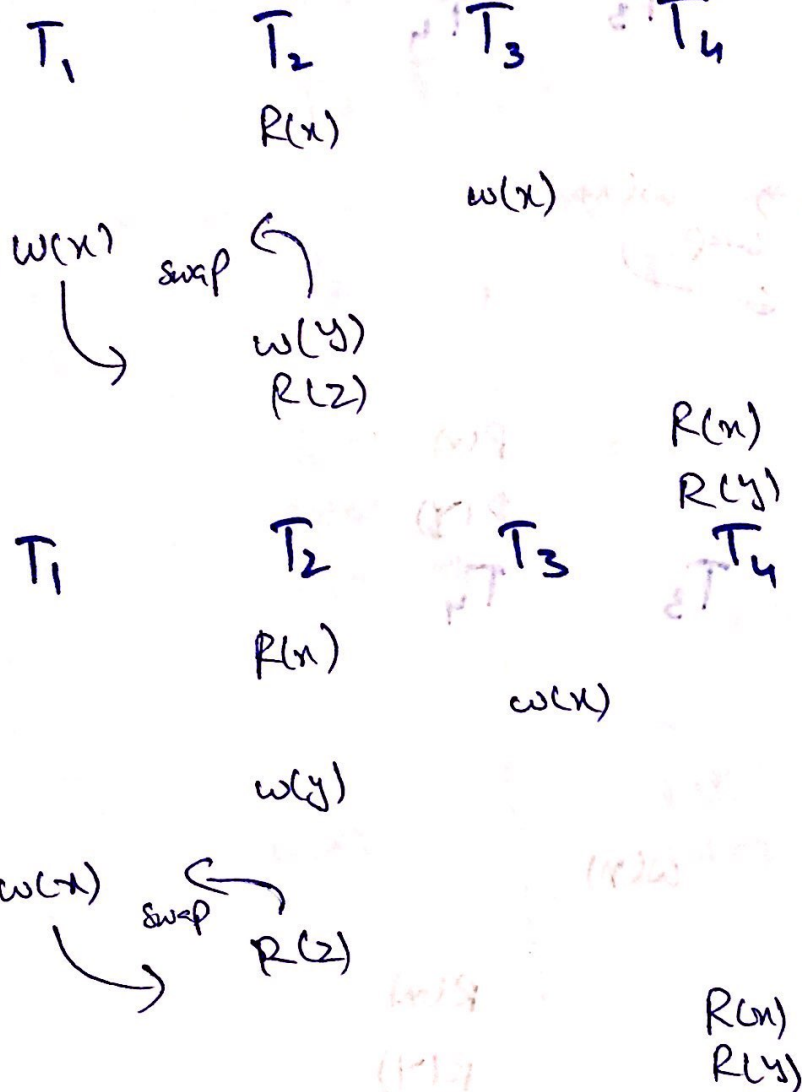 T₁ T₂ T₃ T₄
R(x)
w(x)
w(x)
swap
w(y)
R(z)
R(x)
R(y)
T₁ T₂ T₃ T₄
R(x)
w(x)
w(y)
w(x)
swap
R(z)
R(x)
R(y)